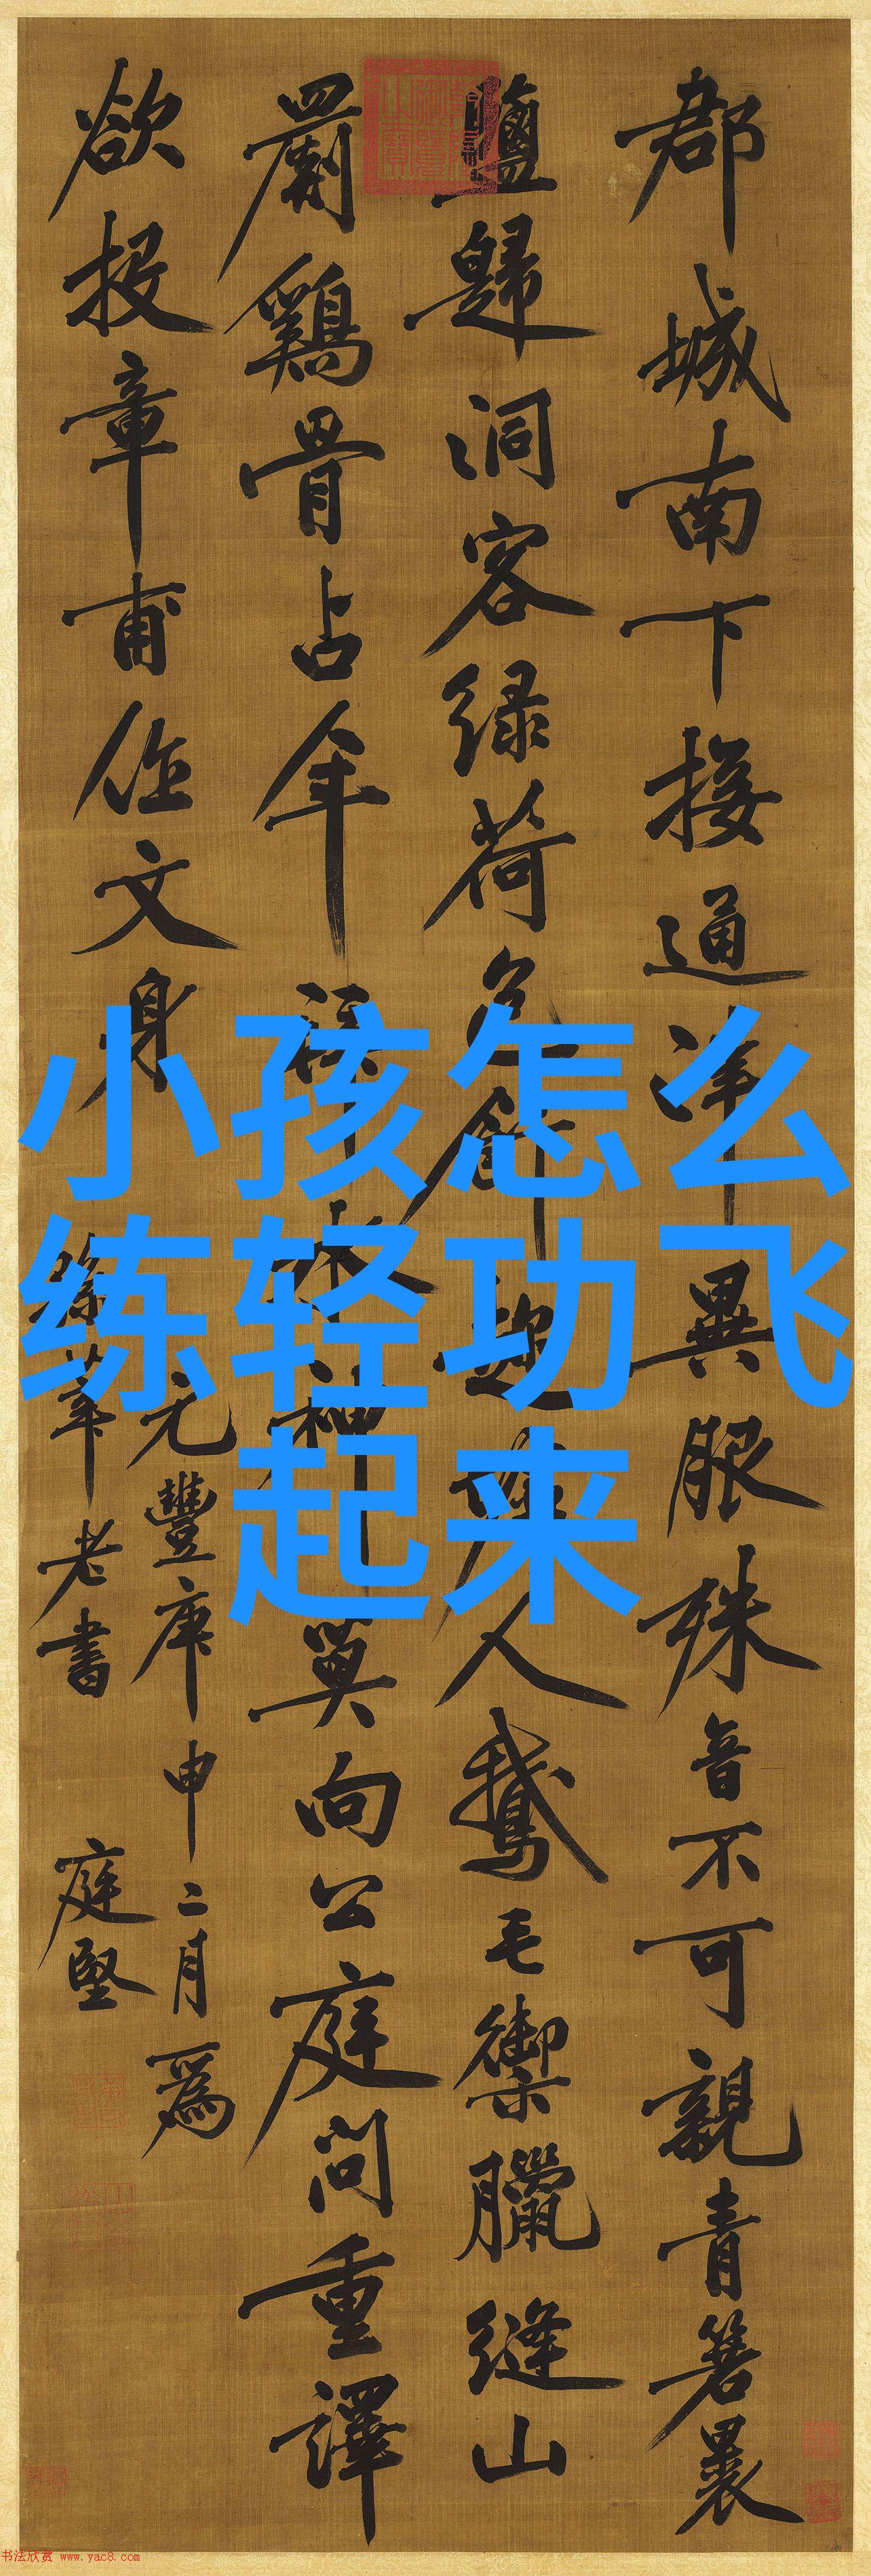 郡城南下接通津異服殊音不可親青箬裹
鹽歸洞客绿荷包飯趂人鵝毛禦臘縫山
罽鷄骨占年水神莫向公庭問重譯
欲投章甫作文身
元豐庚申二月爲
孫莘老書 庭堅
小孩怎么
练轻功飞
起来
书法欣赏 www.yac8.com